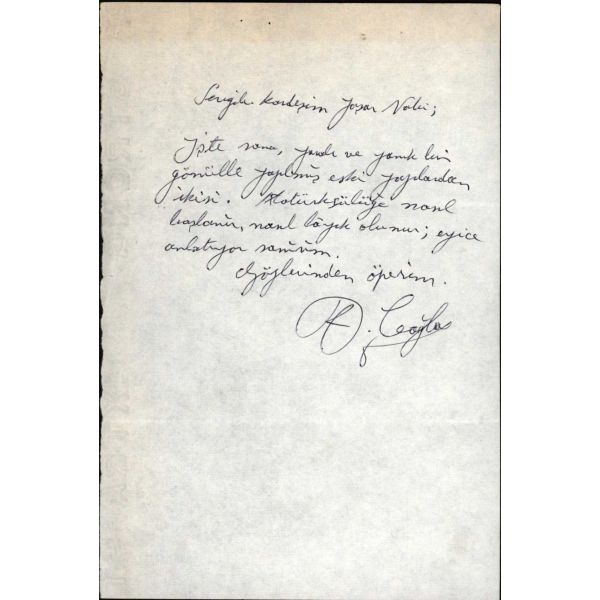 Sevgili kardeşim Yaşar Nabi;
İşte sana, yanık bir
gönülle yapılmış eski yazılardan
ikisi. Atatürkçülüğe nasıl
başlanır, nasıl lâyık olunur; eyice
anlatıyor sanırım.
Gözlerinden öperim.